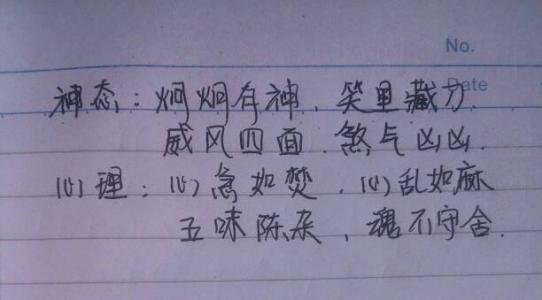 No.
Date
神态：炯炯有神、笑里藏刀、
威风四面、煞气凶凶.
心理：心急如焚、心乱如麻
五味陈杂、魂不守舍.